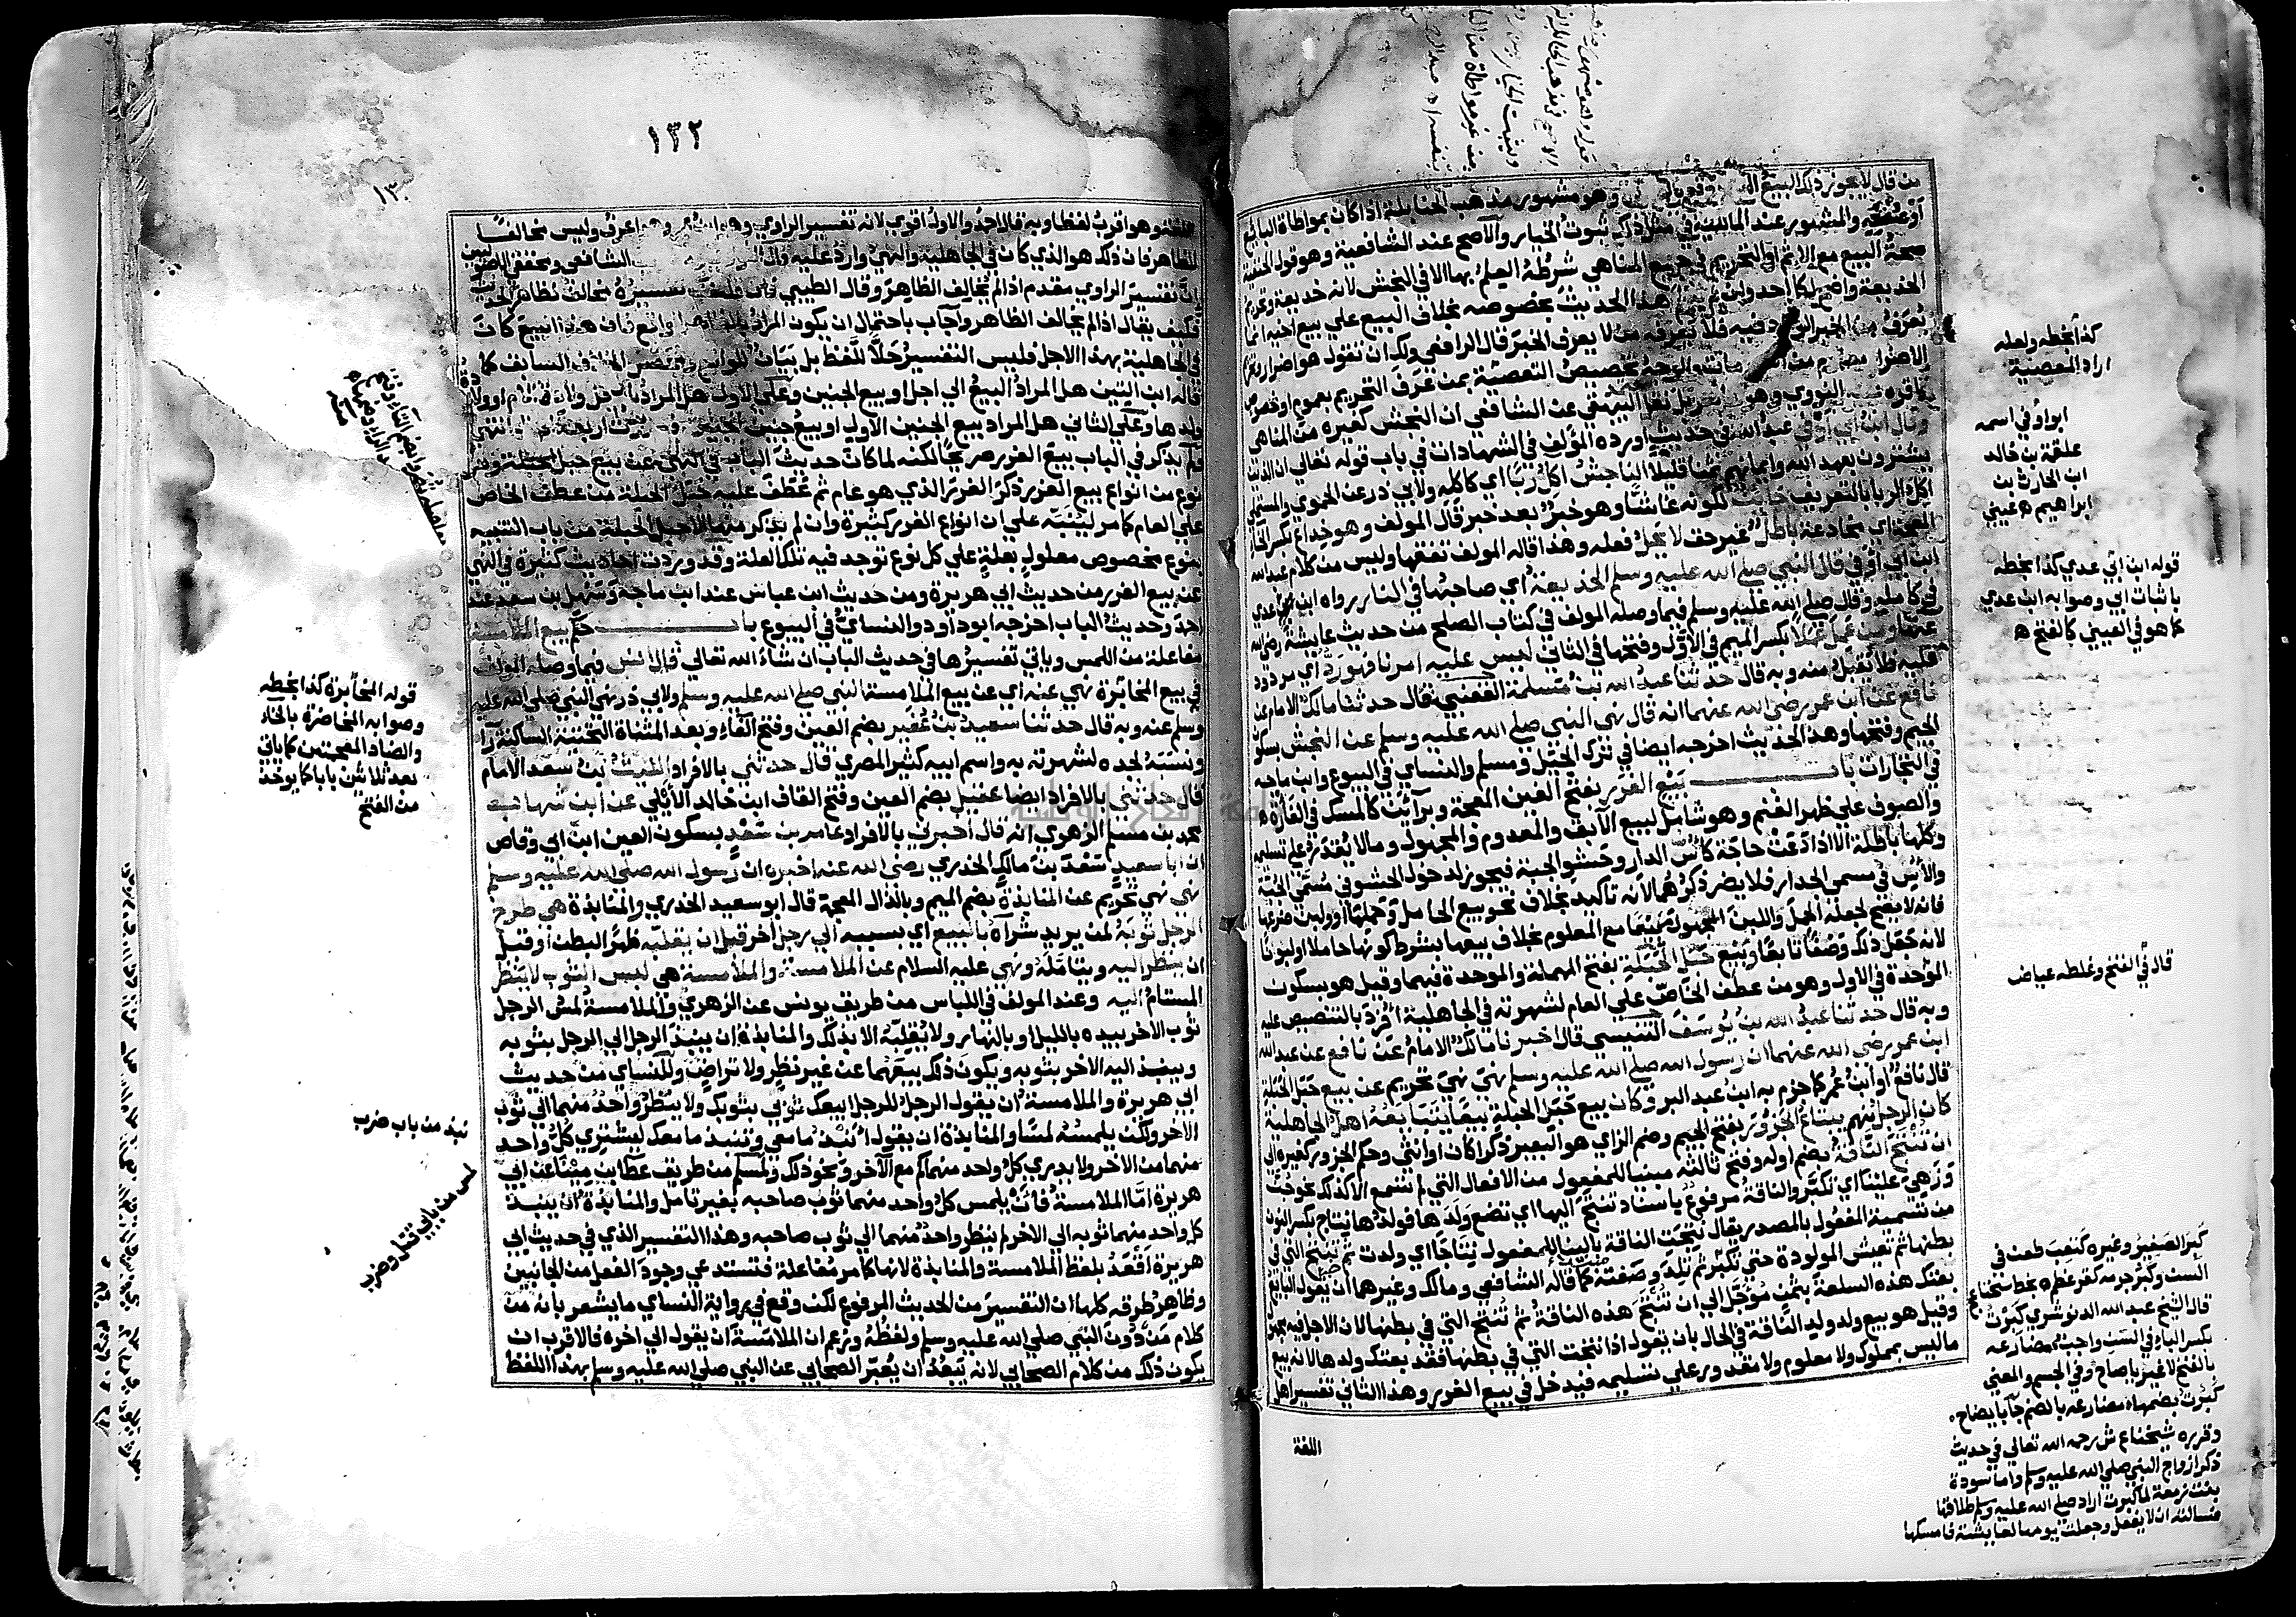 من قال لا يجوز ذلك البيع وهو مشهور مذهب الحنابلة اذا كان بمواطاة البايع
او بصنعه والمشهور عند المالكية في مثل ذلك ثبوت الخيار والاصح عند الشافعية وهو قول الحنفية
صحة البيع مع الاثم والتحريم في جميع المناهي شرطه العلم بها الا في النجش لانه خديعة وتحريم
الخديعة واضح لكل احد وان لم يعلم هذا الحديث بخصوصه بخلاف البيع على بيع اخيه انما
يعرف من الخبر الوارد فيه فلا يعرفه من لا يعرف الخبر قال الرافعي ولك ان تقول هو اضرار
الاضرار والوجه تخصيص التعصية بمن عرف التحريم بعموم او خصوص
واقره النووي وهو البيهقي عن الشافعي ان النجش كغيره من المناهي
وقال ابن ابي اوفى عبد الله في حديث اورده المؤلف في الشهادات في باب قوله تعالى ان الذين
يشترون بعهد الله وايمانهم ثمنا قليلا الناجش اكل ربا اي كاكله ولابي ذر عن الحموي والمستملي
اكل الربا بالتعريف خاين لكونه غاشا وهو خبر بعد خبر قال المولف وهو خداع بكسر الخاء
المعجمة اي مخادعة باطل غير حق لا يحل فعله وهذا قاله المولف تفقها وليس من كلام عبد الله
ابن ابي اوفى قال النبي صلى الله عليه وسلم الخديعة اي صاحبها في النار رواه ابن ابي عدي
في كامله وقال صلى الله عليه وسلم فيما وصله المولف في كتاب الصلح من حديث عايشة رضي الله
عنها ومن عمل عملا بكسر الميم في الاول وفتحها في الثاني ليس عليه امرنا فهو رد اي مردود
عليه فلا يقبل منه وبه قال حدثنا عبد الله بن مسلمة القعنبي قال حدثنا مالك الامام عن
نافع عن ابن عمر رضي الله عنهما انه قال نهى النبي صلى الله عليه وسلم عن النجش بسكون
الجيم وفتحها وهذا الحديث اخرجه ايضا في ترك الحيل ومسلم والنساي في البيوع وابن ماجه
في التجارات باب بيع الغرر بفتح الغين المعجمة وبراين كالمسك في الفارة
والصوف على ظهر الغنم وهو شامل لبيع الآبق والمعدوم والمجهول وما لا يقدر على تسليمه
وكلها باطلة الا اذا دعت حاجة كاس الدار وحشو الجبة فيجوز لدخول الحشو في مسمى الجبة
والاس في مسمى الجدار فلا يضر ذكرهما لانه تاكيد بخلاف نحو بيع الحامل وحملها او ولبن ضرعها
فانه لا يصح لجعله الحمل واللبن المجهول مبيعا مع المعلوم بخلاف بيعها بشرط كونها حاملا او لبونا
لانه جعل ذلك وصفا تابعا وبيع حبل الحبلة بفتح المهملة والموحدة فيهما وقيل هو بسكون
الموحدة في الاول وهو من عطف الخاص على العام لشهرته في الجاهلية افرد بالتنصيص عليه
وبه قال حدثنا عبد الله بن يوسف التنيسي قال اخبرنا مالك الامام عن نافع عن عبد الله
ابن عمر رضي الله عنهما ان رسول الله صلى الله عليه وسلم نهى نهي تحريم عن بيع حبل الحبلة
قال نافع او ابن عمر كما جزم به ابن عبد البر وكان بيع حبل الحبلة بيعا يتبايعه اهل الجاهلية
كان الرجل منهم يبتاع الجزور بفتح الجيم وضم الزاي هو البعير ذكرا كان او انثى وحكم الجزور كغيره الى
ان تنتج الناقة بضم اوله وفتح ثالثه مبنيا للمفعول من الافعال التي لم تسمع الا كذلك نحو جن
وزهي علينا اي تكبر والناقة مرفوع باسناد تنتج اليها اي تضع ولدها فولدها نتاج بكسر النون
من تسمية المفعول بالمصدر يقال نتجت الناقة بالبنا للمفعول نتاجا اي ولدت ثم تنتج التي في
بطنها ثم تعيش المولودة حتى تكبر ثم تلد وصفته كما قاله الشافعي ومالك وغيرهما ان يقول البايع
بعتك هذه السلعة بثمن مؤجل الى ان تنتج هذه الناقة ثم تنتج التي في بطنها لان الاجل فيه مجهول
وقيل هو بيع ولد ولد الناقة في الحال بان يقول اذا نتجت التي في بطنها فقد بعتك ولدها لانه بيع
ما ليس بمملوك ولا معلوم ولا مقدور على تسليمه فيدخل في بيع الغرر وهذا الثاني تفسير اهل
اللغة
كذا بخطه ولعله
اراد المعصية
ابو اوفى اسمه
علقمة بن خالد
ابن الحارث بن
ابراهيم ه عيني
قوله ابن ابي عدي كذا بخطه
باثبات ابي وصوابه ابن عدي
كما هو في العيني كالفتح ه
قال في الفتح وغلطه عياض
كبر الصغير وغيره كتعب طعن في
السن وكبر جرمه كقر عظم ه بخط شيخنا عج
قال الشيخ عبد الله الدنوشري كبرت
بكسر الباء في السن واجب مضارعه
بالفتح لا غير يا صاح وفي الجسم والمعنى
كبرت بضمها مضارعه بالضم جاء يا صاح
وقرره شيخنا ع ش رحمه الله تعالى في حديث
ذكر ازواج النبي صلى الله عليه وسلم واما سودة
بنت زمعة لما كبرت اراد صلى الله عليه وسلم طلاقها
فسالته ان لا يفعل وجعلت يومها لعايشة فامسكها
١٣٢
١٣٠
اللغة وهو اقرب لفظا وبه قال احمد والاول اقوى لانه تفسير الراوي وهو ابن عمر وهو اعرف وليس مخالفا
للظاهر فان ذلك هو الذي كان في الجاهلية والنهي وارد عليه الشافعي ومحققي الاصوليين
ان تفسير الراوي مقدم اذا لم يخالف الظاهر وقال الطيبي فان قلت تفسيره مخالف لظاهر الحديث
فكيف يقال اذا لم يخالف الظاهر واجاب باحتمال ان يكون المراد بالظاهر الواقع فان هذا البيع كان
في الجاهلية بهذا الاجل فليس التفسير حلا للفظ بل بيان للواقع
قاله ابن التين هل المراد البيع الى اجل او بيع الجنين وعلى الاول هل المراد بالاجل ولادة الام او ولادة
ولدها وعلى الثاني هل المراد بيع الجنين الاول او بيع جنين الجنين فصارت اربعة اقوال انتهى
لم يذكر في الباب بيع الغرر صريحا لكنه لما كان حديث الباب في النهي عن بيع حبل الحبلة وهو
نوع من انواع بيع الغرر ذكر الغرر الذي هو عام ثم عطف عليه حبل الحبلة من عطف الخاص
على العام كما مر لينبه على ان انواع الغرر كثيرة وان لم يذكر منها الا حبل الحبلة من باب التنبيه
بنوع مخصوص معلول بعلة على كل نوع توجد فيه تلك العلة وقد وردت احاديث كثيرة في النهي
عن بيع الغرر من حديث ابي هريرة ومن حديث ابن عباس عند ابن ماجة وسهل بن سعد عند
احمد وحديث الباب اخرجه ابو داود والنساي في البيوع باب حكم بيع الملامسة
مفاعلة من اللمس وياتي تفسيرها في حديث الباب ان شاء الله تعالى قال انس فيما وصله المولف
في بيع المخابزة نهى عنه اي عن بيع الملامسة النبي صلى الله عليه وسلم ولابي ذر نهى النبي صلى الله عليه
وسلم عنه وبه قال حدثنا سعيد بن عفير بضم العين وفتح الفاء وبعد المثناة التحتية الساكنة را
ونسبه لجده لشهرته به واسم ابيه كثير المصري قال حدثني بالافراد الليث بن سعد الامام
قال حدثني بالافراد ايضا عقيل بضم العين وفتح القاف ابن خالد الايلي عن ابن شهاب
محمد بن مسلم الزهري انه قال اخبرني بالافراد عامر بن سعد بسكون العين ابن ابي وقاص
ان ابا سعيد سعد بن مالك الخدري رضي الله عنه اخبره ان رسول الله صلى الله عليه وسلم
نهى نهي تحريم عن المنابذة بضم الميم وبالذال المعجمة قال ابو سعيد الخدري والمنابذة هي طرح
الرجل ثوبه لمن يريد شراه بالبيع اي بسببه الى رجل اخر قبل ان يقلبه ظهر البطن او قبل
ان ينظر اليه ويتامله ونهى عليه السلام عن الملامسة والملامسة هي لمس الثوب لا ينظر
المستام اليه وعند المولف في اللباس من طريق يونس عن الزهري والملامسة لمس الرجل
ثوب الاخر بيده بالليل او بالنهار ولا يقلبه الا بذلك والمنابذة ان ينبذ الرجل الى الرجل بثوبه
وينبذ اليه الاخر بثوبه ويكون ذلك بيعهما عن غير نظر ولا تراض وللنساي من حديث
ابي هريرة والملامسة ان يقول الرجل للرجل ابيعك ثوبي بثوبك ولا ينظر واحد منهما الى ثوب
الاخر ولكن يلمسه لمسا والمنابذة ان يقول انبذ ما معي وتنبذ ما معك ليشتري كل واحد
منهما من الاخر ولا يدري كل واحد منهما كم مع الآخر ونحو ذلك ولمسلم من طريق عطا بن مينا عن ابي
هريرة اما الملامسة فان يلمس كل واحد منهما ثوب صاحبه بغير تامل والمنابذة ان ينبذ
كل واحد منهما ثوبه الى الاخر لم ينظر واحد منهما الى ثوب صاحبه وهذا التفسير الذي في حديث ابي
هريرة اقعد بلفظ الملامسة والمنابذة لانها كما مر مفاعلة فتستدعي وجود الفعل من الجانبين
وظاهر طرقه كلها ان التفسير من الحديث المرفوع لكن وقع في رواية النساي ما يشعر بانه من
كلام من دون النبي صلى الله عليه وسلم ولفظه وزعم ان الملامسة ان يقول الى اخره فالاقرب ان
يكون ذلك من كلام الصحابي لانه يبعد ان يعبر الصحابي عن النبي صلى الله عليه وسلم بهذا اللفظ
قوله المخابزة كذا بخطه
وصوابه المخاضرة بالخاء
والضاد المعجمتين كما ياتي
بعد ثلاثين بابا كما يوخذ
من الفتح
نبذ من باب ضرب
لمس من بابي قتل وضرب